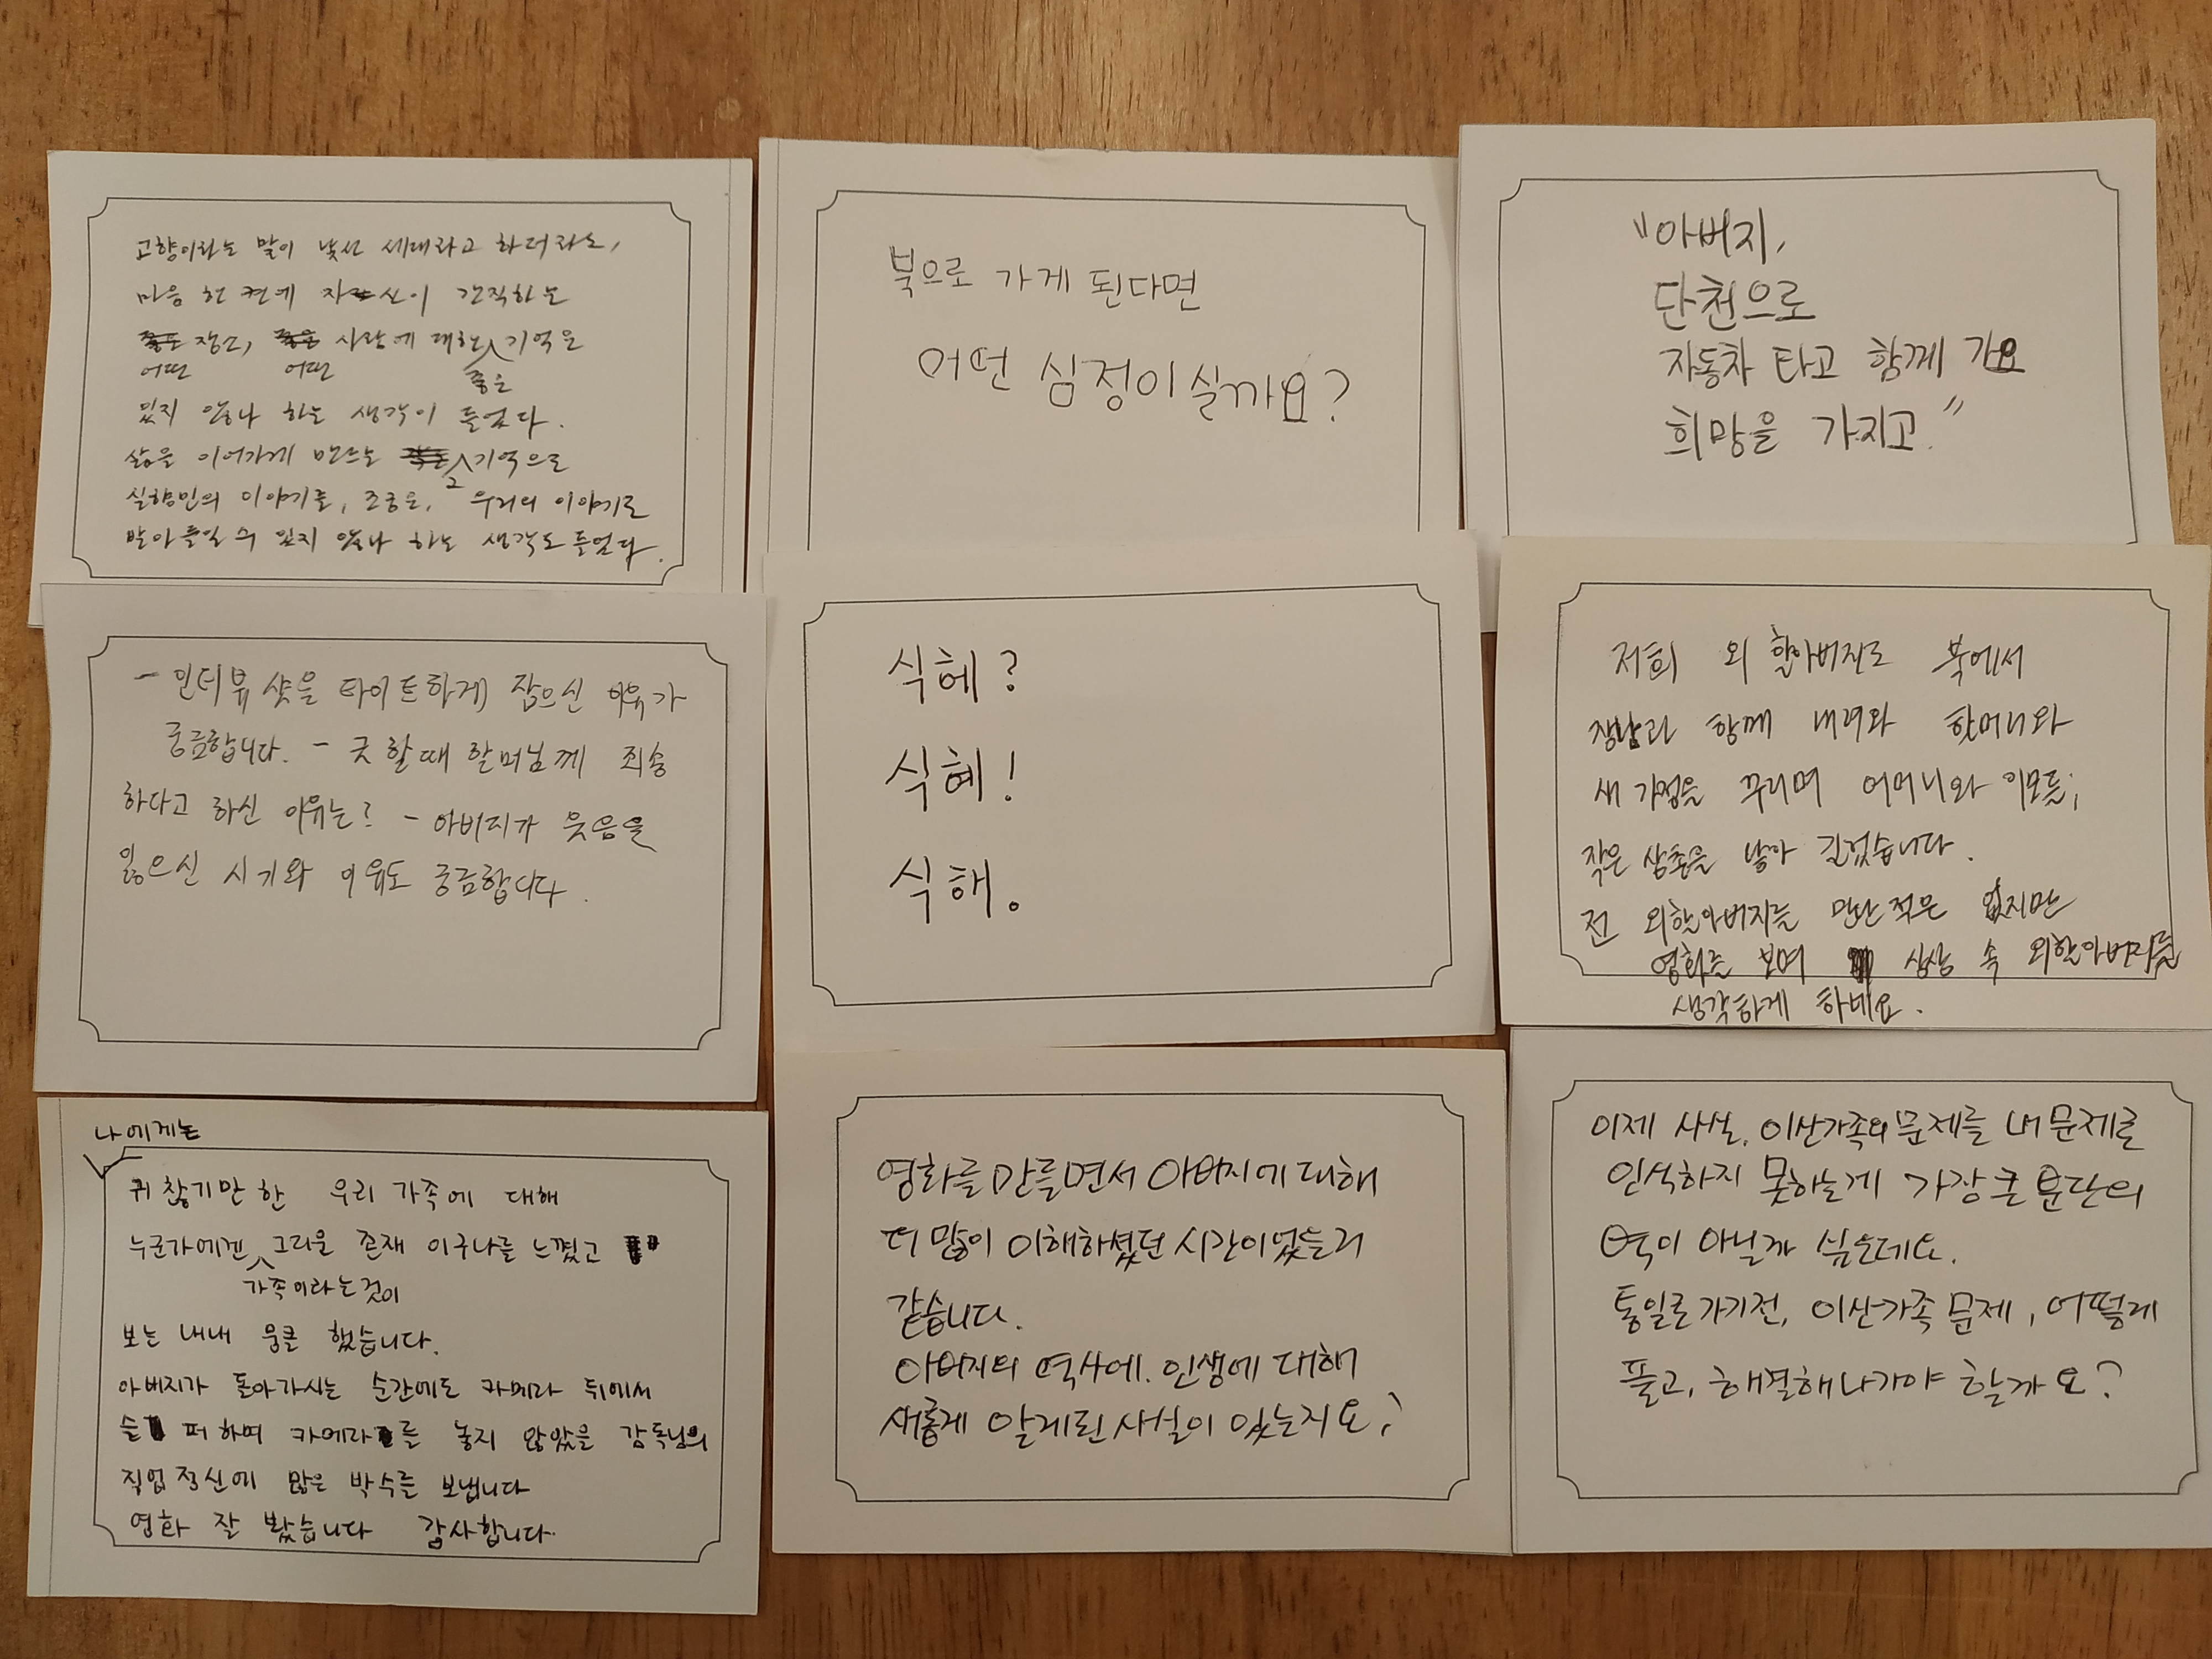 고향이라는 말이 낯선 세대라고 하더라도,
마음 한 켠에 자신이 간직하는
어떤 장소, 어떤 사람에 대한 좋은 기억은
있지 않나 하는 생각이 들었다.
삶을 이어가게 만드는 그 기억으로
실향민의 이야기를, 조금은, 우리의 이야기로
받아들일 수 있지 않나 하는 생각도 들었다.
북으로 가게 된다면
어떤 심정이실까요?
"아버지,
단천으로
자동차 타고 함께 가요
희망을 가지고."
- 인터뷰 샷을 타이트하게 잡으신 이유가
궁금합니다. - 굿 할때 할머님께 죄송
하다고 하신 이유는? - 아버지가 웃음을
잃으신 시기와 이유도 궁금합니다.
식헤?
식혜!
식해。
저희 외 할아버지도 북에서
장남과 함께 내려와 할머니와
새 가정을 꾸리며 어머니와 이모들,
작은 삼촌을 낳아 길렀습니다.
전 외할아버지를 만난적은 없지만
영화를 보며 상상 속 외할아버지를
생각하게 하네요.
나에게는
귀찮기만 한 우리 가족에 대해
누군가에겐 가족이라는것이 그리운 존재 이구나를 느꼈고
보는 내내 뭉클 했습니다.
아버지가 돌아가시는 순간에도 카메라 뒤에서
슬퍼하며 카메라를 놓지 않았을 감독님의
직업정신에 많은 박수를 보냅니다
영화 잘 봤습니다 감사합니다.
영화를 만들면서 아버지에 대해
더 많이 이해하셨던 시간이었을거
같습니다.
아버지의 역사에. 인생에 대해
새롭게 알게된 사실이 있는지요?
이제 사실, 이산가족의 문제를 내 문제로
인식하지 못하는게 가장 큰 분단의
벽이 아닐까 싶은데요.
통일로 가기전, 이산가족 문제, 어떻게
풀고, 해결해나가야 할까요?